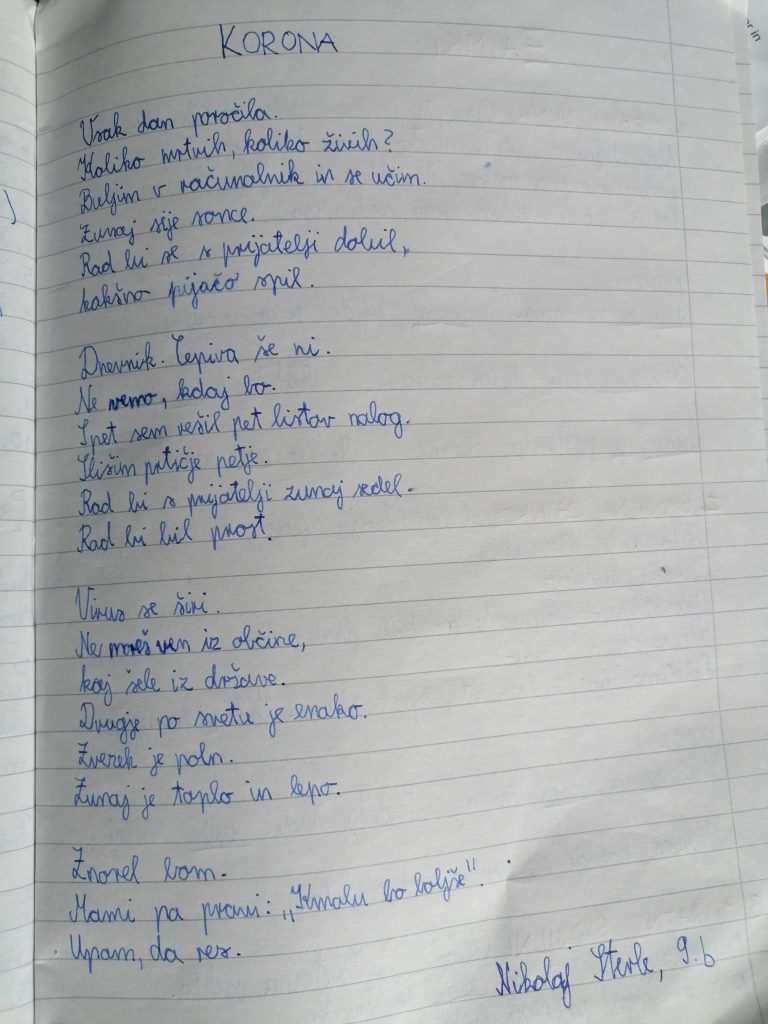 KORONA
Vsak dan poročila.
Koliko mrtvih, koliko živih?
Buljim v računalnik in se učim.
Zunaj sije sonce.
Rad bi se s prijatelji dobil,
kakšno pijačo spil.
Dnevnik. Cepiva še ni.
Ne vemo, kdaj bo.
Spet sem rešil pet listov nalog.
Slišim ptičje petje.
Rad bi s prijatelji zunaj sedel.
Rad bi bil prost.
Virus se širi.
Ne moreš ven iz občine,
kaj šele iz države.
Drugje po svetu je enako.
Zvezek je poln.
Zunaj je toplo in lepo.
Znorel bom.
Mami pa pravi: „Kmalu bo boljše".
Upam, da res.
Nikolaj Sterle, 9.b